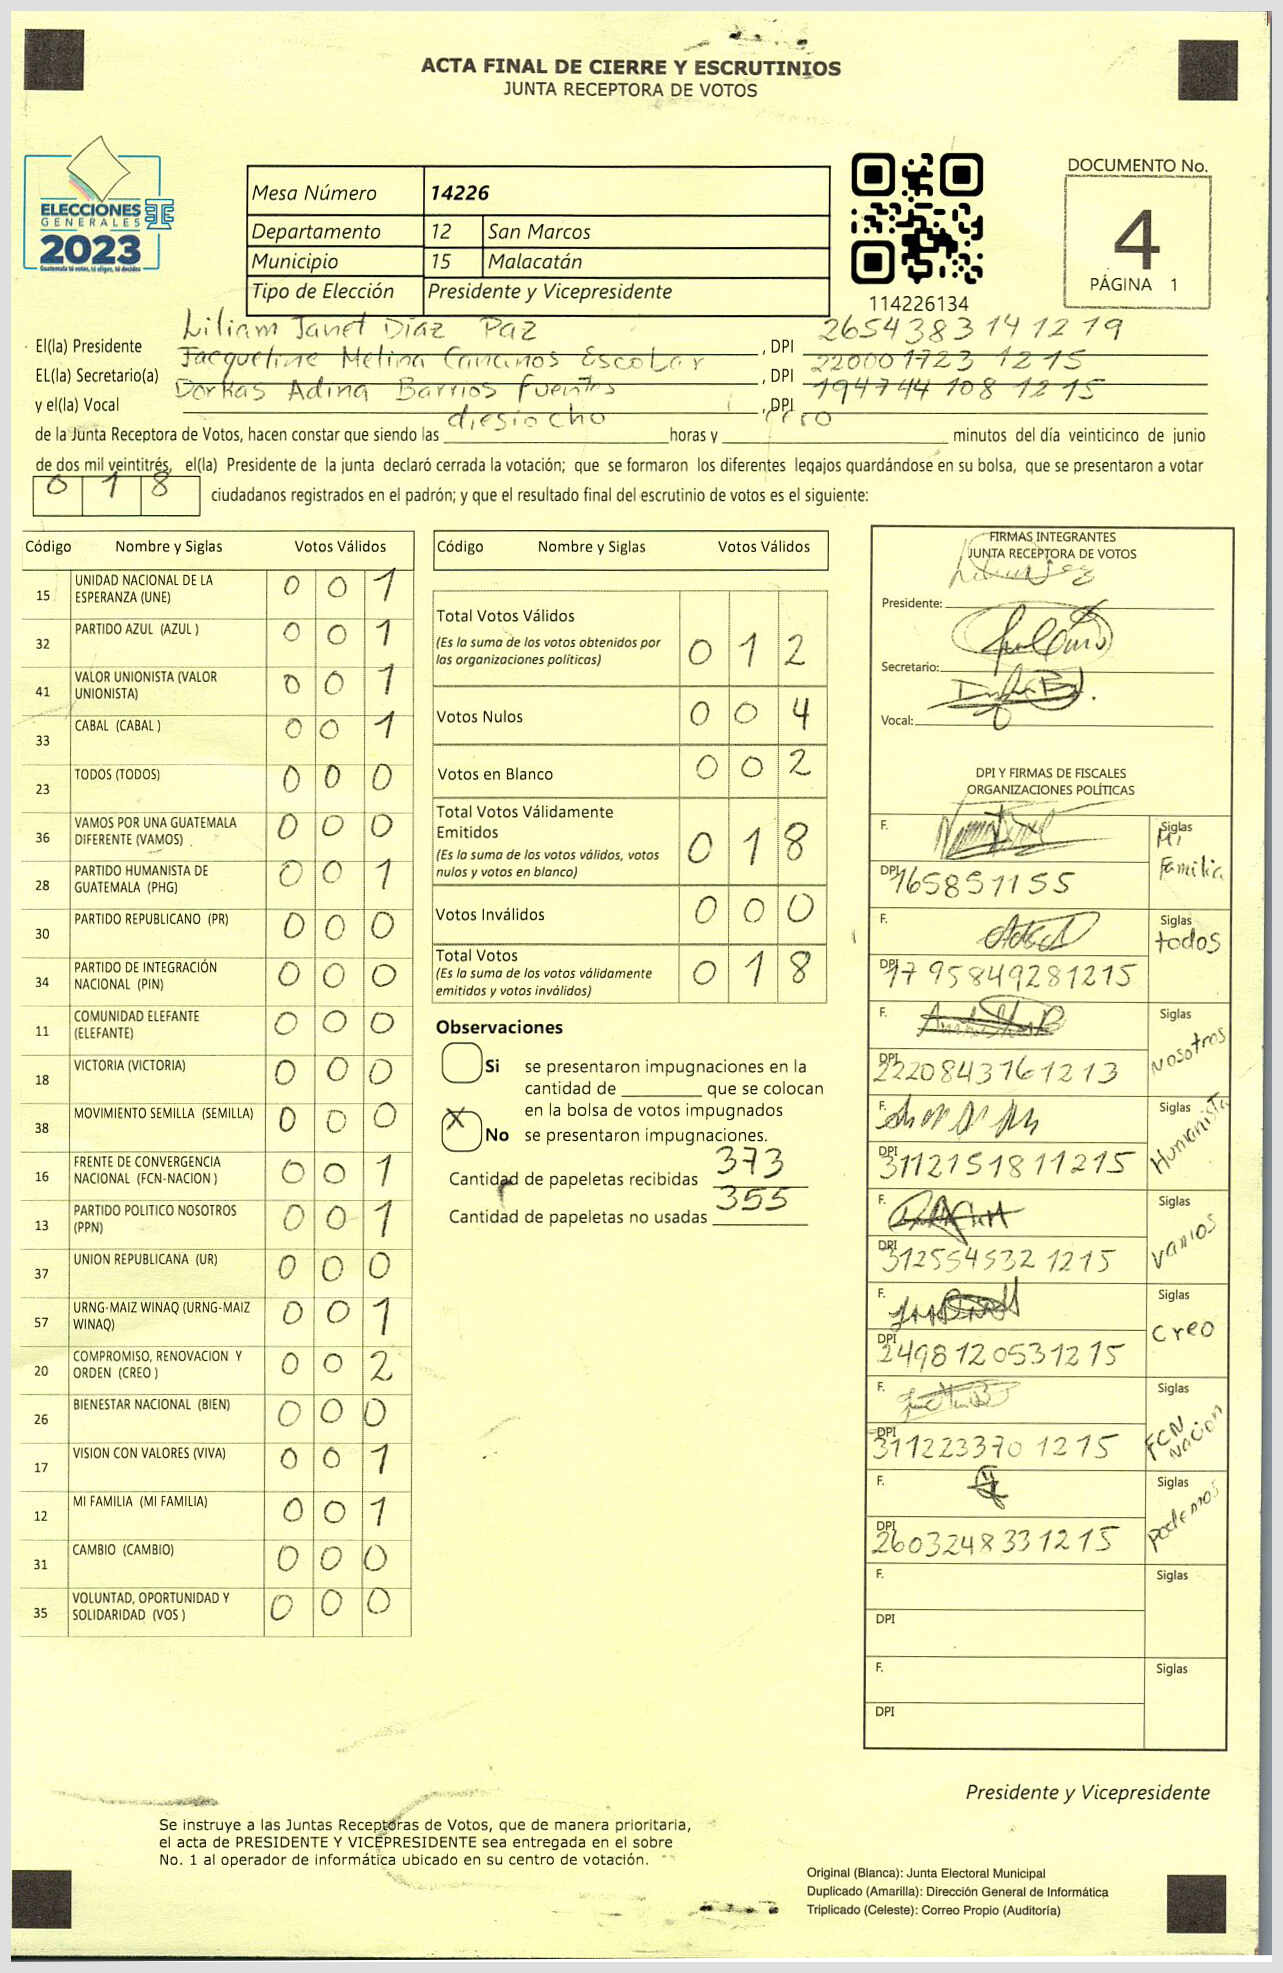 ACTA FINAL DE CIERRE Y ESCRUTINIOS
JUNTA RECEPTORA DE VOTOS
ELECCIONES
GENERALES
2023
Guatemala tú votes, tú eliges, tú decides
Mesa Número 14226
Departamento 12 San Marcos
Municipio 15 Malacatán
Tipo de Elección Presidente y Vicepresidente
114226134
DOCUMENTO No.
4
PÁGINA 1
El(la) Presidente Liliam Janet Díaz Paz, DPI 2654383141219
EL(la) Secretario(a) Jacqueline Melina Escobar, DPI 220001723 1215
y el(la) Vocal Dorkas Adina Barrios Fuentes, DPI 194744108 1215
de la Junta Receptora de Votos, hacen constar que siendo las diesiocho horas y cero minutos del día veinticinco de junio
de dos mil veintitrés, el(la) Presidente de la junta declaró cerrada la votación; que se formaron los diferentes legajos guardándose en su bolsa, que se presentaron a votar
0 1 8 ciudadanos registrados en el padrón; y que el resultado final del escrutinio de votos es el siguiente:
Código Nombre y Siglas Votos Válidos
15 UNIDAD NACIONAL DE LA ESPERANZA (UNE) 0 0 1
32 PARTIDO AZUL (AZUL ) 0 0 1
41 VALOR UNIONISTA (VALOR UNIONISTA) 0 0 1
33 CABAL (CABAL ) 0 0 1
23 TODOS (TODOS) 0 0 0
36 VAMOS POR UNA GUATEMALA DIFERENTE (VAMOS) 0 0 0
28 PARTIDO HUMANISTA DE GUATEMALA (PHG) 0 0 1
30 PARTIDO REPUBLICANO (PR) 0 0 0
34 PARTIDO DE INTEGRACIÓN NACIONAL (PIN) 0 0 0
11 COMUNIDAD ELEFANTE (ELEFANTE) 0 0 0
18 VICTORIA (VICTORIA) 0 0 0
38 MOVIMIENTO SEMILLA (SEMILLA) 0 0 0
16 FRENTE DE CONVERGENCIA NACIONAL (FCN-NACION ) 0 0 1
13 PARTIDO POLITICO NOSOTROS (PPN) 0 0 1
37 UNION REPUBLICANA (UR) 0 0 0
57 URNG-MAIZ WINAQ (URNG-MAIZ WINAQ) 0 0 1
20 COMPROMISO, RENOVACION Y ORDEN (CREO ) 0 0 2
26 BIENESTAR NACIONAL (BIEN) 0 0 0
17 VISION CON VALORES (VIVA) 0 0 1
12 MI FAMILIA (MI FAMILIA) 0 0 1
31 CAMBIO (CAMBIO) 0 0 0
35 VOLUNTAD, OPORTUNIDAD Y SOLIDARIDAD (VOS ) 0 0 0
Código Nombre y Siglas Votos Válidos
Total Votos Válidos 0 1 2
(Es la suma de los votos obtenidos por
las organizaciones políticas)
Votos Nulos 0 0 4
Votos en Blanco 0 0 2
Total Votos Válidamente
Emitidos 0 1 8
(Es la suma de los votos válidos, votos
nulos y votos en blanco)
Votos Inválidos 0 0 0
Total Votos 0 1 8
(Es la suma de los votos válidamente
emitidos y votos inválidos)
Observaciones
Si se presentaron impugnaciones en la
cantidad de ________ que se colocan
en la bolsa de votos impugnados
X No se presentaron impugnaciones.
Cantidad de papeletas recibidas 373
Cantidad de papeletas no usadas 355
FIRMAS INTEGRANTES
JUNTA RECEPTORA DE VOTOS
Presidente:
Secretario:
Vocal:
DPI Y FIRMAS DE FISCALES
ORGANIZACIONES POLÍTICAS
F. Siglas Mi Familia
DPI 165851155
F. Siglas todos
DPI 17 95849281215
F. Siglas Nosotros
DPI 2220843161213
F. Siglas Humanista
DPI 3112151811215
F. Siglas Vamos
DPI 312554532 1215
F. Siglas Creo
DPI 2498120531215
F. Siglas FCN Nacion
DPI 311223370 1215
F. Siglas Podemos
DPI 260324833 1215
F. Siglas
DPI
F. Siglas
DPI
Presidente y Vicepresidente
Se instruye a las Juntas Receptoras de Votos, que de manera prioritaria,
el acta de PRESIDENTE Y VICEPRESIDENTE sea entregada en el sobre
No. 1 al operador de informática ubicado en su centro de votación.
Original (Blanca): Junta Electoral Municipal
Duplicado (Amarilla): Dirección General de Informática
Triplicado (Celeste): Correo Propio (Auditoría)